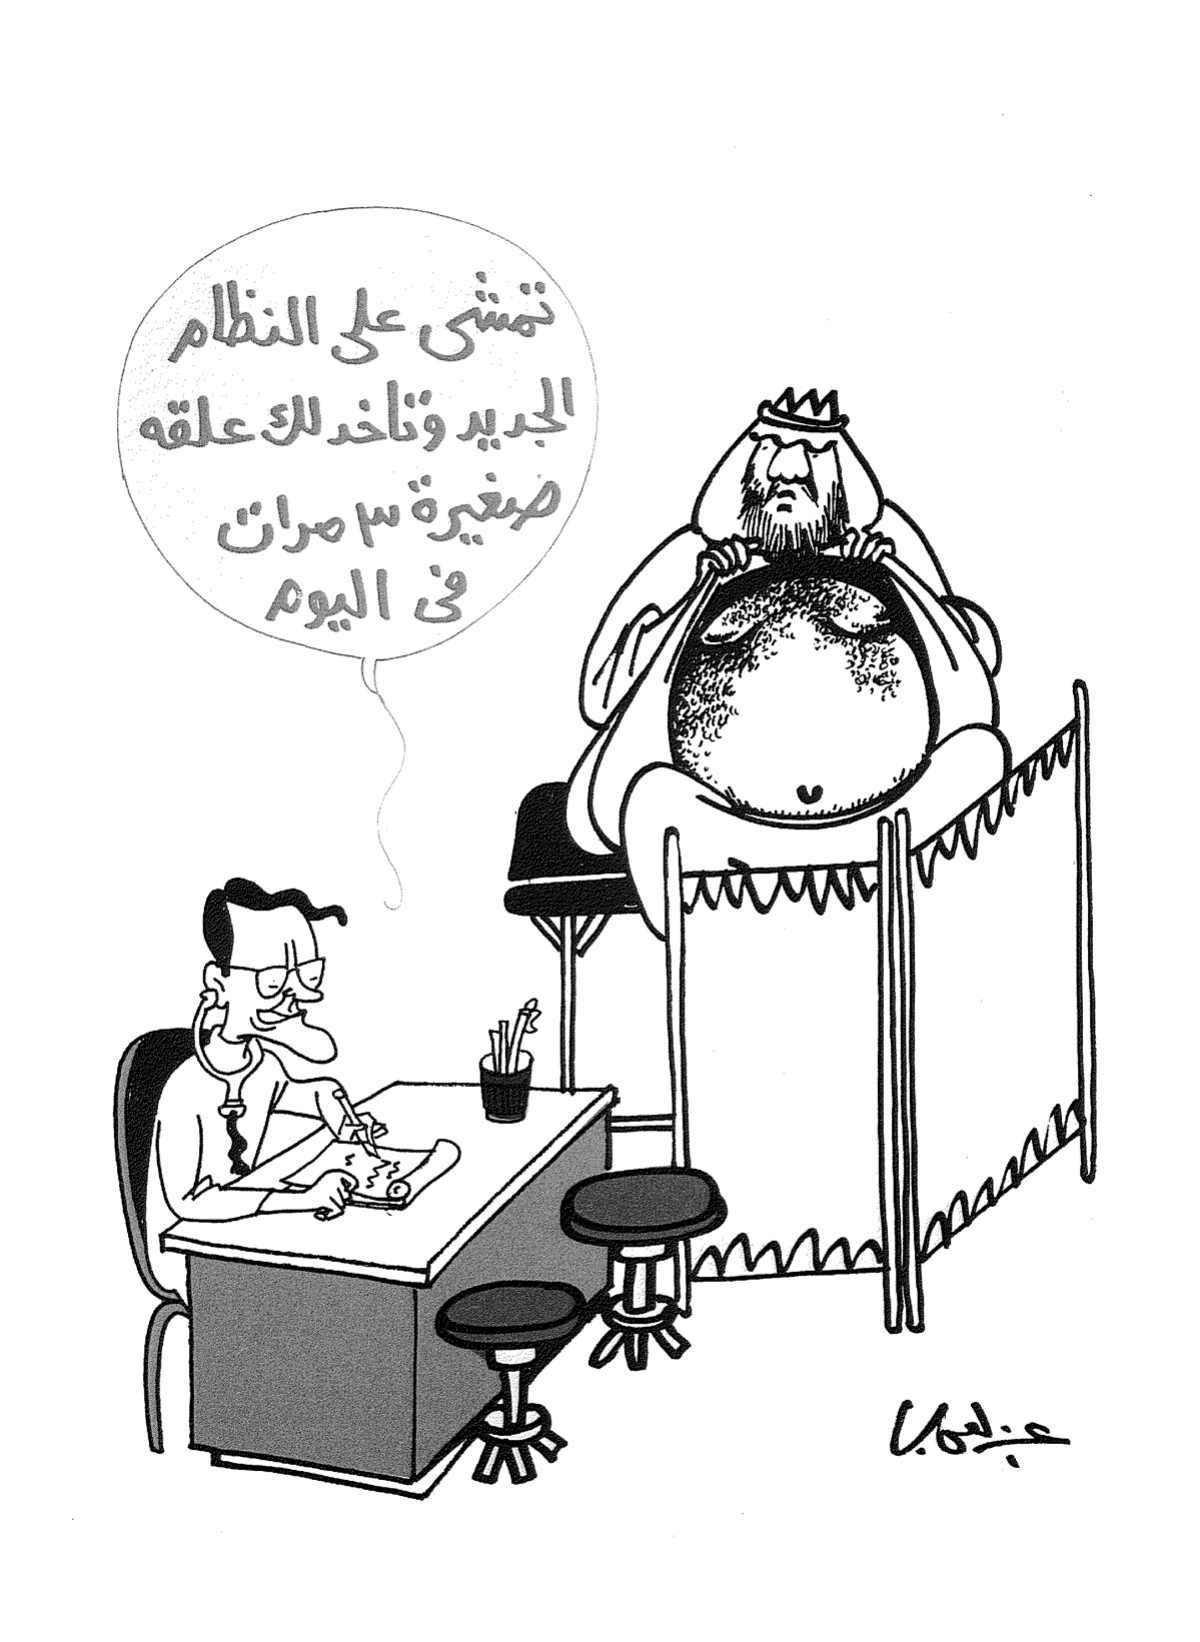 تمشى على النظام
الجديد وتأخد لك علقه
صغيرة ٣ مرات
فى اليوم